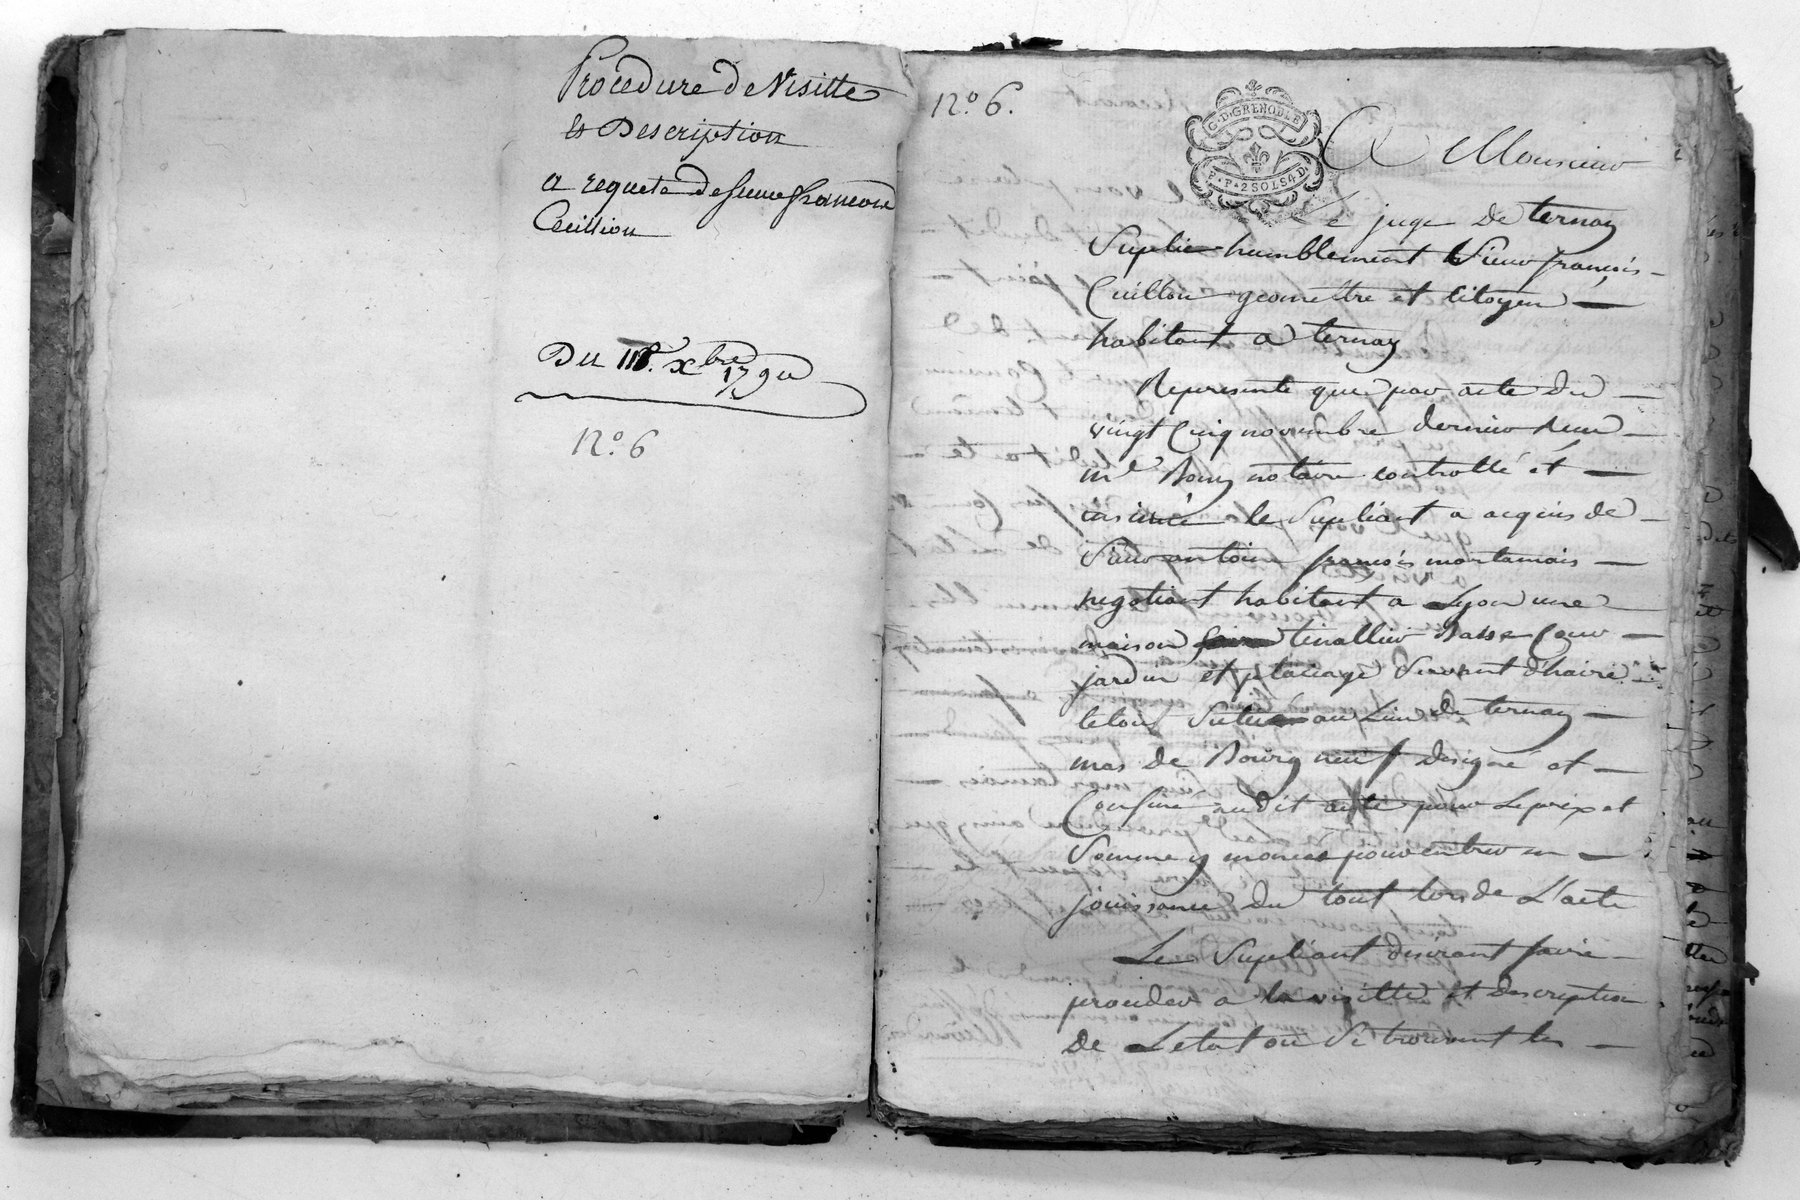 Procedure de Visitte
et Description
a requete de sieur francois
Cuillon
Du 18. xbre
1790
N.o 6
N.o 6.
G.D. GRENOBLE
P.P. 2 SOLS 4 D.
A Monsieur
Le juge de ternay
Suplie humblement Sieur françois
Cuillon geomettre et citoyen
habitant a ternay
Represente que par acte du
vingt cinq novembre dernier
me notaire controllé et
insinué le Supliant a acquis de
Sieur antoine francois mortamais
negotiant habitant a Lyon une
maison tinallier Basse Cour
jardin et plassage Servant d'haire
letout Situé au Lieu de ternay
mas de Bourg neuf designé et
Confiné audit acte pour Le prix et
Somme y enoncés pour entrer en
jouissance du tout lors de L'acte
Le Supliant desirant faire
proceder a la visitte et description
de Letat ou Se trouvent les